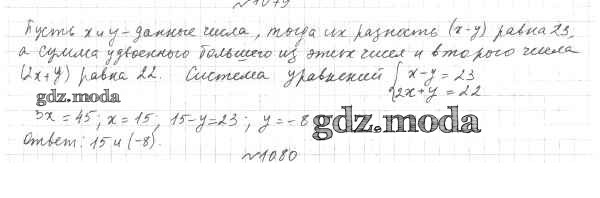 №1079
Пусть x и y - данные числа, тогда их разность (x-y) равна 23,
а сумма удвоенного большего из этих чисел и второго числа
(2x+y) равна 22. Система уравнений { x-y = 23
2x+y = 22
gdz.moda
3x = 45; x = 15; 15-y=23; y = -8 gdz.moda
Ответ: 15 и (-8).
№1080